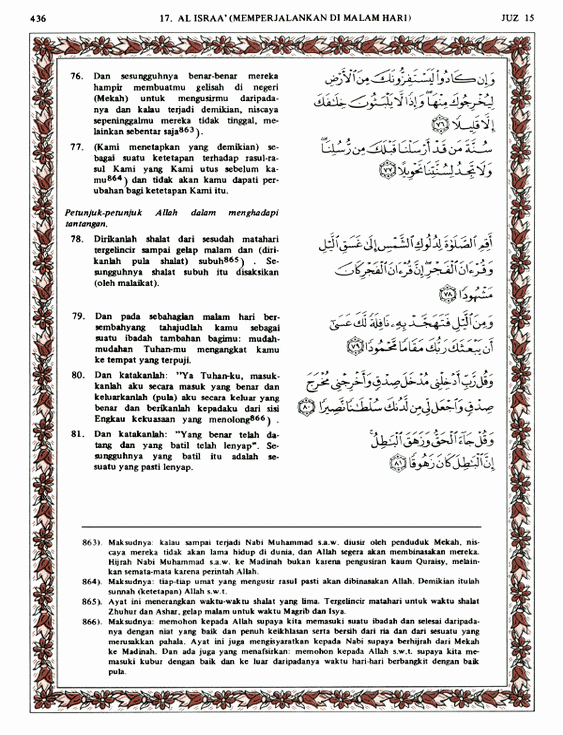 436
17. AL ISRAA' (MEMPERJALANKAN DI MALAM HARI)
JUZ 15
76. Dan sesungguhnya benar-benar mereka
hampir membuatmu gelisah di negeri
(Mekah) untuk mengusirmu daripada-
nya dan kalau terjadi demikian, niscaya
sepeninggalmu mereka tidak tinggal, me-
lainkan sebentar saja863).
وَإِن كَادُوا۟ لَيَسْتَفِزُّونَكَ مِنَ ٱلْأَرْضِ
لِيُخْرِجُوكَ مِنْهَا ۖ وَإِذًا لَّا يَلْبَثُونَ خِلَـٰفَكَ
إِلَّا قَلِيلًا ﴿٧٦﴾
77. (Kami menetapkan yang demikian) se-
bagai suatu ketetapan terhadap rasul-ra-
sul Kami yang Kami utus sebelum ka-
mu864) dan tidak akan kamu dapati per-
ubahan bagi ketetapan Kami itu.
سُنَّةَ مَن قَدْ أَرْسَلْنَا قَبْلَكَ مِن رُّسُلِنَا ۖ
وَلَا تَجِدُ لِسُنَّتِنَا تَحْوِيلًا ﴿٧٧﴾
Petunjuk-petunjuk Allah dalam menghadapi
tantangan.
78. Dirikanlah shalat dari sesudah matahari
tergelincir sampai gelap malam dan (diri-
kanlah pula shalat) subuh865) . Se-
sungguhnya shalat subuh itu disaksikan
(oleh malaikat).
أَقِمِ ٱلصَّلَوٰةَ لِدُلُوكِ ٱلشَّمْسِ إِلَىٰ غَسَقِ ٱلَّيْلِ
وَقُرْءَانَ ٱلْفَجْرِ ۖ إِنَّ قُرْءَانَ ٱلْفَجْرِ كَانَ
مَشْهُودًا ﴿٧٨﴾
79. Dan pada sebahagian malam hari ber-
sembahyang tahajudlah kamu sebagai
suatu ibadah tambahan bagimu: mudah-
mudahan Tuhan-mu mengangkat kamu
ke tempat yang terpuji.
وَمِنَ ٱلَّيْلِ فَتَهَجَّدْ بِهِۦ نَافِلَةً لَّكَ عَسَىٰٓ
أَن يَبْعَثَكَ رَبُّكَ مَقَامًا مَّحْمُودًا ﴿٧٩﴾
80. Dan katakanlah: "Ya Tuhan-ku, masuk-
kanlah aku secara masuk yang benar dan
keluarkanlah (pula) aku secara keluar yang
benar dan berikanlah kepadaku dari sisi
Engkau kekuasaan yang menolong866) .
وَقُل رَّبِّ أَدْخِلْنِى مُدْخَلَ صِدْقٍ وَأَخْرِجْنِى مُخْرَجَ
صِدْقٍ وَٱجْعَل لِّى مِن لَّدُنكَ سُلْطَـٰنًا نَّصِيرًا ﴿٨٠﴾
81. Dan katakanlah: "Yang benar telah da-
tang dan yang batil telah lenyap". Se-
sungguhnya yang batil itu adalah se-
suatu yang pasti lenyap.
وَقُلْ جَآءَ ٱلْحَقُّ وَزَهَقَ ٱلْبَـٰطِلُ ۚ
إِنَّ ٱلْبَـٰطِلَ كَانَ زَهُوقًا ﴿٨١﴾
863). Maksudnya: kalau sampai terjadi Nabi Muhammad s.a.w. diusir oleh penduduk Mekah, nis-
caya mereka tidak akan lama hidup di dunia, dan Allah segera akan membinasakan mereka.
Hijrah Nabi Muhammad s.a.w. ke Madinah bukan karena pengusiran kaum Quraisy, melain-
kan semata-mata karena perintah Allah.
864). Maksudnya: tiap-tiap umat yang mengusir rasul pasti akan dibinasakan Allah. Demikian itulah
sunnah (ketetapan) Allah s.w.t.
865). Ayat ini menerangkan waktu-waktu shalat yang lima. Tergelincir matahari untuk waktu shalat
Zhuhur dan Ashar, gelap malam untuk waktu Magrib dan Isya.
866). Maksudnya: memohon kepada Allah supaya kita memasuki suatu ibadah dan selesai daripada-
nya dengan niat yang baik dan penuh keikhlasan serta bersih dari ria dan dari sesuatu yang
merusakkan pahala. Ayat ini juga mengisyaratkan kepada Nabi supaya berhijrah dari Mekah
ke Madinah. Dan ada juga yang menafsirkan: memohon kepada Allah s.w.t. supaya kita me-
masuki kubur dengan baik dan ke luar daripadanya waktu hari-hari berbangkit dengan baik
pula.